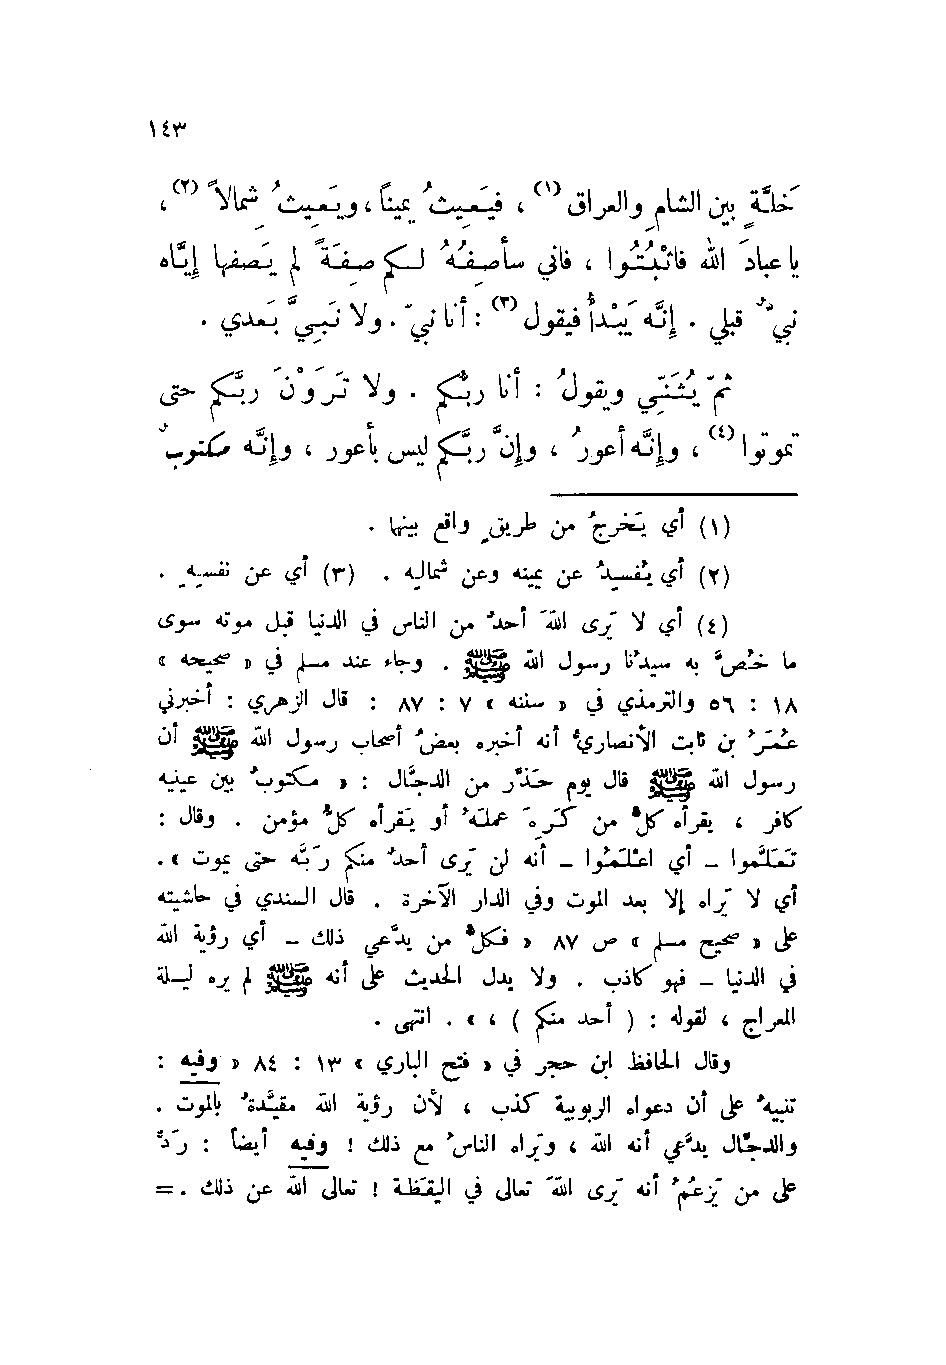 ١٤٣
خَلَّةٍ بين الشامِ والعراق (١) ، فيَعِيثُ يميناً ، ويَعِيثُ شمالاً (٢) ،
يا عبادَ الله فاثْبُتُوا ، فاني سأصِفُهُ لكم صِفَةً لم يَصفها إيَّاه
نبيٌّ قبلي . إنَّه يَبْدأُ فيقول (٣) : أنا نبيّ . ولا نَبِيَّ بَعدي .
ثمّ يُثَنِّي ويقولُ : أنا ربُّكم . ولا تَرَوْنَ ربَّكم حتى
تموتوا (٤) ، وإنَّه أعورُ ، وإنَّ ربَّكم ليس بأعور ، وإنَّه مكتوبٌ
(١) أي يَخرجُ من طريقٍ واقع بينها .
(٢) أي يُفسِدُ عن يمينه وعن شمالِه . (٣) أي عن نفسِهِ .
(٤) أي لا يَرى اللهَ أحدٌ من الناس في الدنيا قبل موته سوى
ما خُصَّ به سيدُنا رسول الله ﷺ . وجاء عند مسلم في « صحيحه »
١٨ : ٥٦ والترمذي في « سننه » ٧ : ٨٧ : قال الزهري : أخبرني
عُمَرُ بن ثابت الأنصاريُّ أنه أخبره بعضُ أصحاب رسول الله ﷺ أن
رسول الله ﷺ قال يوم حَذَّر من الدجَّال : « مكتوبٌ بين عينيه
كافر ، يقرأه كلُّ من كَرِهَ عملَهُ أو يَقرأه كلُّ مؤمن . وقال :
تَعَلَّموا – أي اعْلَمُوا – أنه لن يَرى أحدٌ منكم رَبَّه حتى يموت » .
أي لا يَراه إلا بعد الموت وفي الدار الآخرة . قال السندي في حاشيته
على « صحيح مسلم » ص ٨٧ « فكلُّ من يدَّعي ذلك – أي رؤية الله
في الدنيا – فهو كاذب . ولا يدل الحديث على أنه ﷺ لم يره ليلة
المعراج ، لقوله : ( أحد منكم ) ، » . انتهى .
وقال الحافظ ابن حجر في « فتح الباري » ١٣ : ٨٤ « وفيه :
تنبيهٌ على أن دعواه الربوبية كذب ، لأن رؤية الله مقيَّدةٌ بالموت .
والدجَّال يدَّعي أنه الله ، ويَراه الناسُ مع ذلك ! وفيه أيضاً : رَدٌّ
على من يَزعُمُ أنه يَرى اللهَ تعالى في اليقَظة ! تعالى اللهُ عن ذلك . =